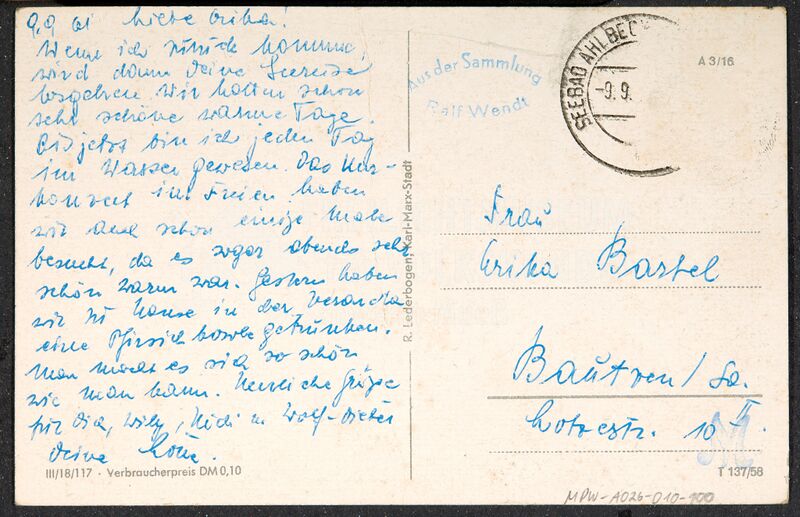 9.9 61 Liebe Erika!
Wenn ich zurück komme,
wird dann Deine
losgehen. Wir hatten schon
sehr schöne warme Tage.
Bis jetzt bin ich jeden Tag
im Wasser gewesen. Das Kur-
konzert im Freien haben
wir auch schon einige Male
besucht, da es sogar abends sehr
schön warm war. Gestern haben
wir zu Hause in der Veranda
eine Pfirsichbowle getrunken.
Man macht es sich so schön
wie man kann. Herzliche Grüße
für Dich, Willy, Heidi u. Wolf-Dieter
Deine
III/18/117 · Verbraucherpreis DM 0,10
R. Lederbogen, Karl-Marx-Stadt
Aus der Sammlung
Ralf Wendt
SEEBAD AHLBECK
-9.9.
A 3/16
Frau
Erika Bartel
Bautzen / Sa.
Lotzestr. 10 II
T 137/58
MPW-A026-010-100